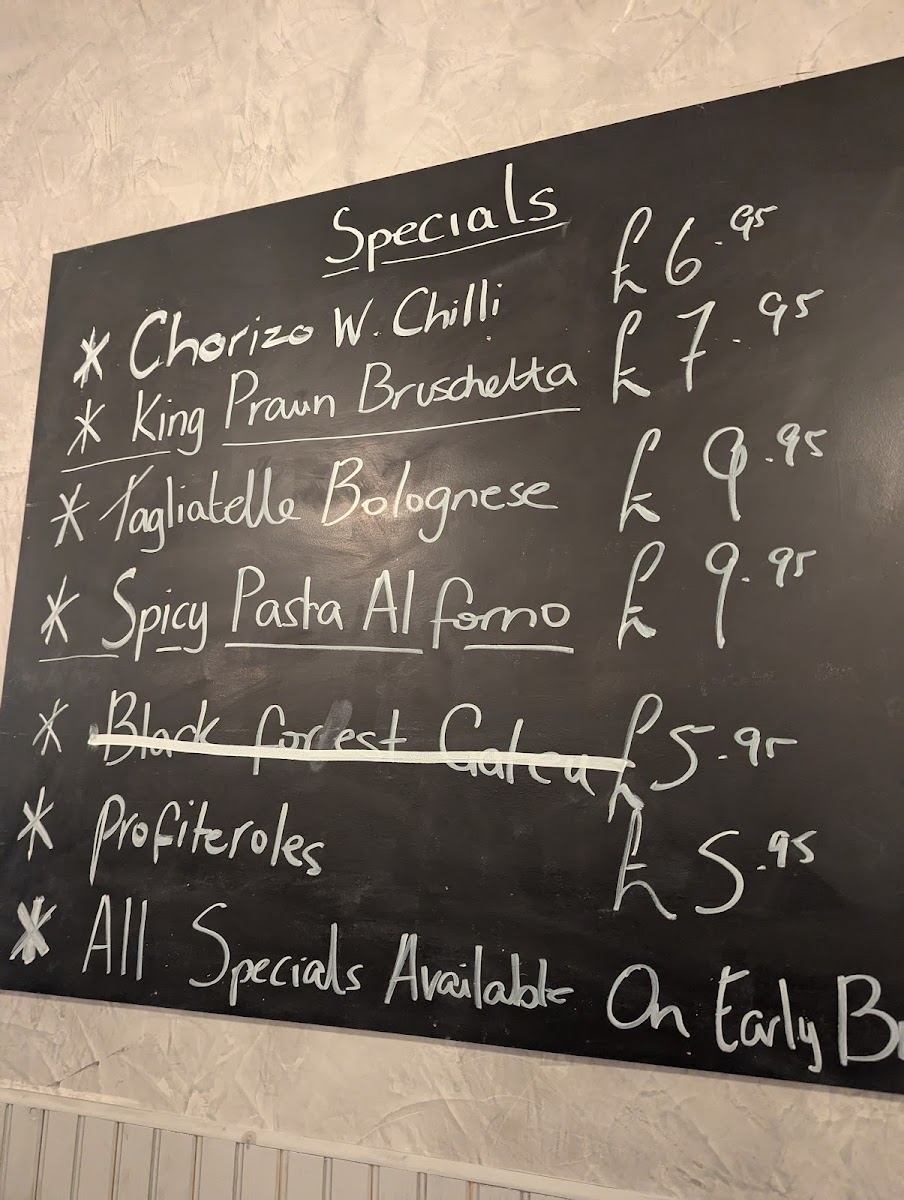 Specials
* Chorizo W. Chilli £6.95
* King Prawn Bruschetta £7.95
* Tagliatelle Bolognese £9.95
* Spicy Pasta Al forno £9.95
* Black forest Gateu £5.95
* Profiteroles £5.95
* All Specials Available On Early